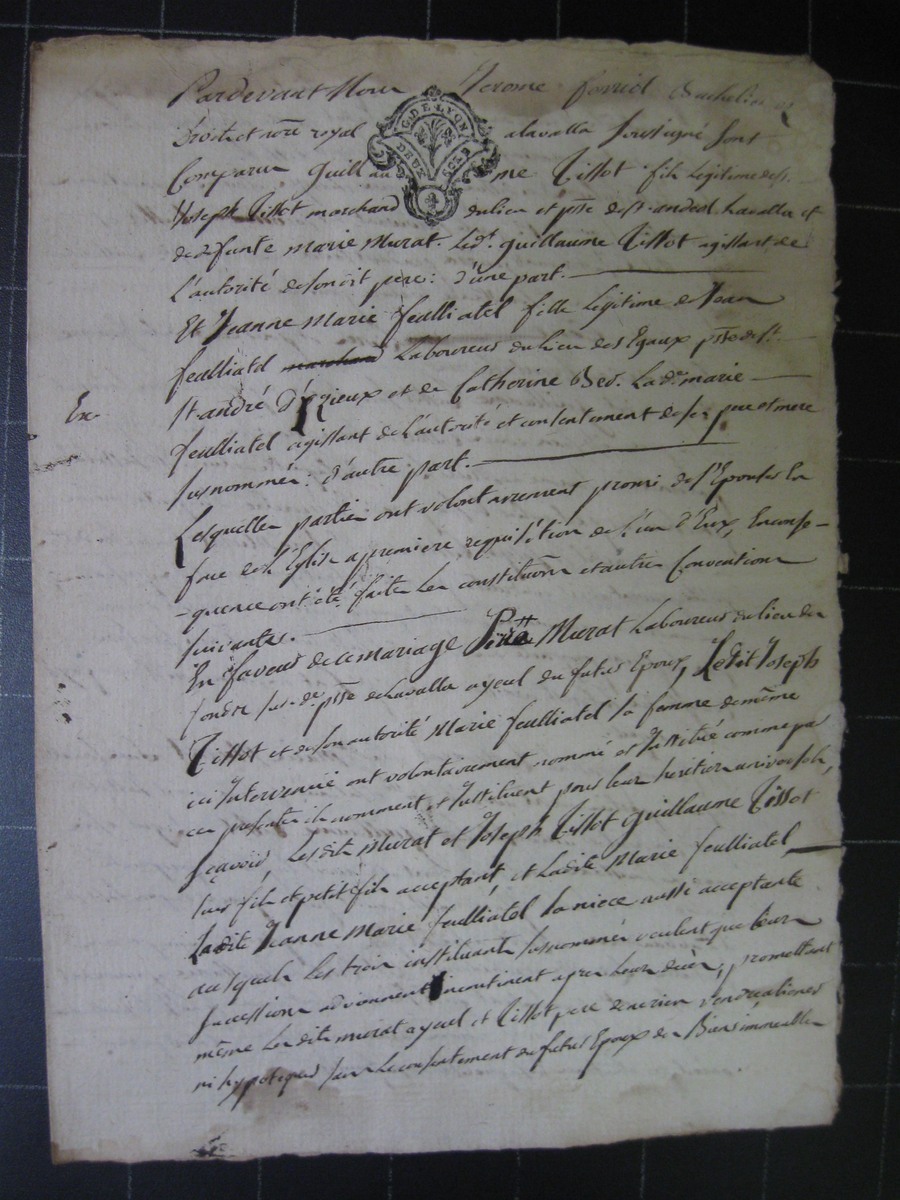 Pardevant Nous Jerome forriel Bachelier es
Droits et not.re royal a lavalla soussigné sont
G. DE LYON
DEUX SOLS
Comparus Guillaume Tissot fils Legitime de s.r
Joseph Tissot marchand du lieu et p.sse de s.t andeol Lavalla et
de defunte Marie Murat. Led.t guillaume Tissot agissant de
L'autorité de son dit pere: d'une part.
Et Jeanne Marie feulliatel fille Legitime de Jean
feulliatel marchand Laboureur du lieu des Egaux p.sse de s.t
s.t andré D'Izieux et de Catherine Bed. La d.e marie
feulliatel agissant de L'autorité et consentement de ses pere et mere
susnommés: d'autre part.
Ex
Lesquelles parties ont volontairement promis de s'Epouser En
face de L'Eglise a premiere requisition de L'un d'Eux, En conse-
-quence ont été faites Les constitutions et autres Conventions
suivantes.
En faveur de ce mariage Murat Laboureur du lieu de
sus d.e p.sse de Lavalla ayeul du futur Epoux, Ledit Joseph
Tissot et de son autorité Marie feulliatel sa femme de même
ici Intervenue ont volontairement nommé et Institué comme par
ces presentes ils nomment et Instituent pour leur heritiers universels,
sçavoir, Lesdits Murat et Joseph Tissot Guillaume Tissot
leur fils et petit fils acceptant, et Ladite Marie feulliatel
Ladite Jeanne Marie feulliatel sa niece aussi acceptante
auxquels Les trois instituants susnommés veulent que leurs
successions adviennent incontinent apres Leur décès, promettant
même Lesdits murat ayeul et Tissot pere de ne rien vendre aliener
ni hypotequer sans Le consentement du futur Epoux des Biens immeubles